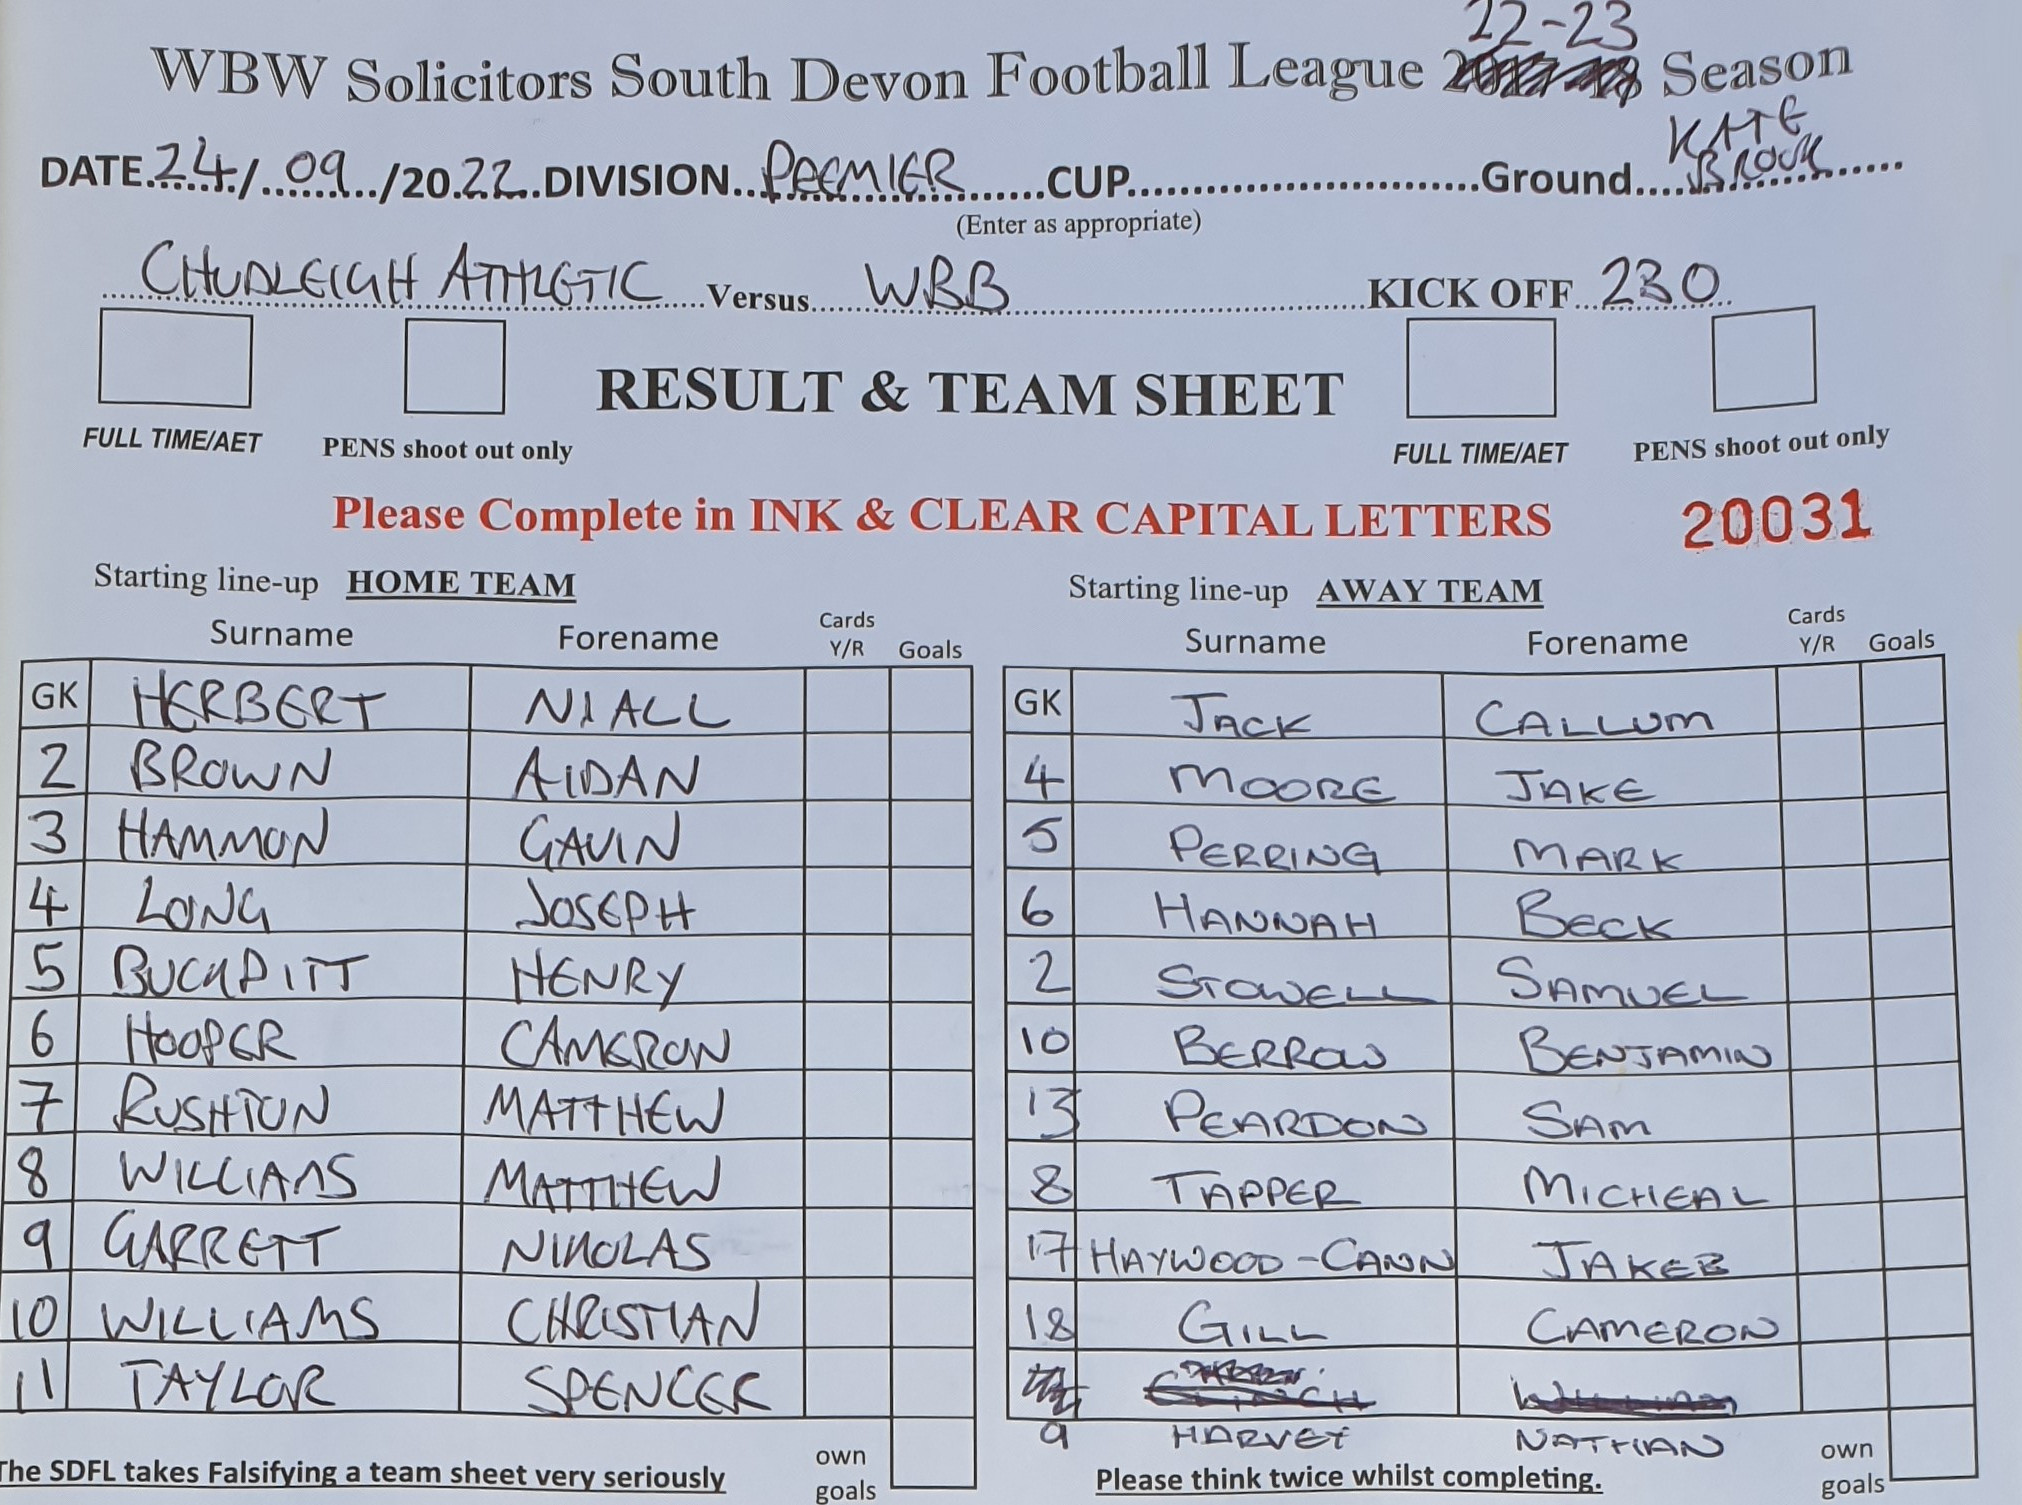 22-23
WBW Solicitors South Devon Football League Season
DATE 24/ 09 /20 22 DIVISION PREMIER CUP Ground KATE BROOK
(Enter as appropriate)
CHUDLEIGH ATHLETIC Versus WBB KICK OFF 230
RESULT & TEAM SHEET
FULL TIME/AET PENS shoot out only FULL TIME/AET PENS shoot out only
Please Complete in INK & CLEAR CAPITAL LETTERS 20031
Starting line-up HOME TEAM Starting line-up AWAY TEAM
Surname Forename Cards Y/R Goals Surname Forename Cards Y/R Goals
GK HERBERT NIALL GK JACK CALLUM
2 BROWN AIDAN 4 MOORE JAKE
3 HAMMON GAVIN 5 PERRING MARK
4 LONG JOSEPH 6 HANNAH BECK
5 BUCKPITT HENRY 2 STOWELL SAMUEL
6 HOOPER CAMERON 10 BERROW BENJAMIN
7 RUSHTON MATTHEW 13 PEARDON SAM
8 WILLIAMS MATTHEW 8 TAPPER MICHEAL
9 GARRETT NIKOLAS 17 HAYWOOD-CANN JAKEB
10 WILLIAMS CHRISTIAN 18 GILL CAMERON
11 TAYLOR SPENCER
9 HARVEY NATHAN
own goals own goals
The SDFL takes Falsifying a team sheet very seriously Please think twice whilst completing.